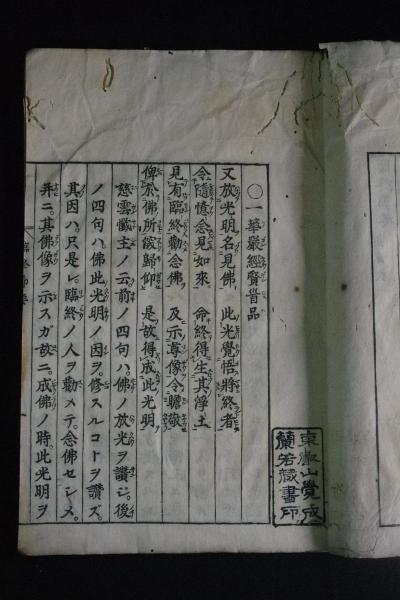 〇一華嚴經賢首品
又放光明名見佛　此光覺悟將終者
令隨憶念見如來　命終得生其淨土
見有臨終勸念佛　及示尊像令瞻敬
俾於佛所深歸仰　是故得成此光明
慈雲懺主ノ云前ノ四句ハ佛ノ放光ヲ讚シ。後
ノ四句ハ佛此光明ノ因ヲ。修スルコトヲ讚ズ。
其因ハ只是レ臨終ノ人ヲ勸メテ。念佛セシメ。
并ニ。其佛像ヲ示スガ故ニ。成佛ノ時。此光明ヲ
東叡山覺成
蘭若藏書印